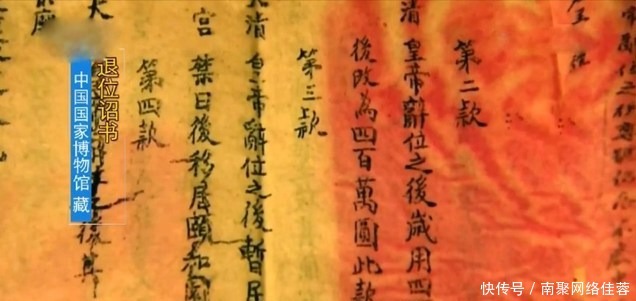 第二款
清皇帝辭位之後歲用四
後改為四百萬圓此款
第三款
大清皇帝辭位之後暫居
宮禁日後移居頤和園
第四款
退位诏书
中国国家博物馆 藏
快传号 / 南聚网络佳蓉